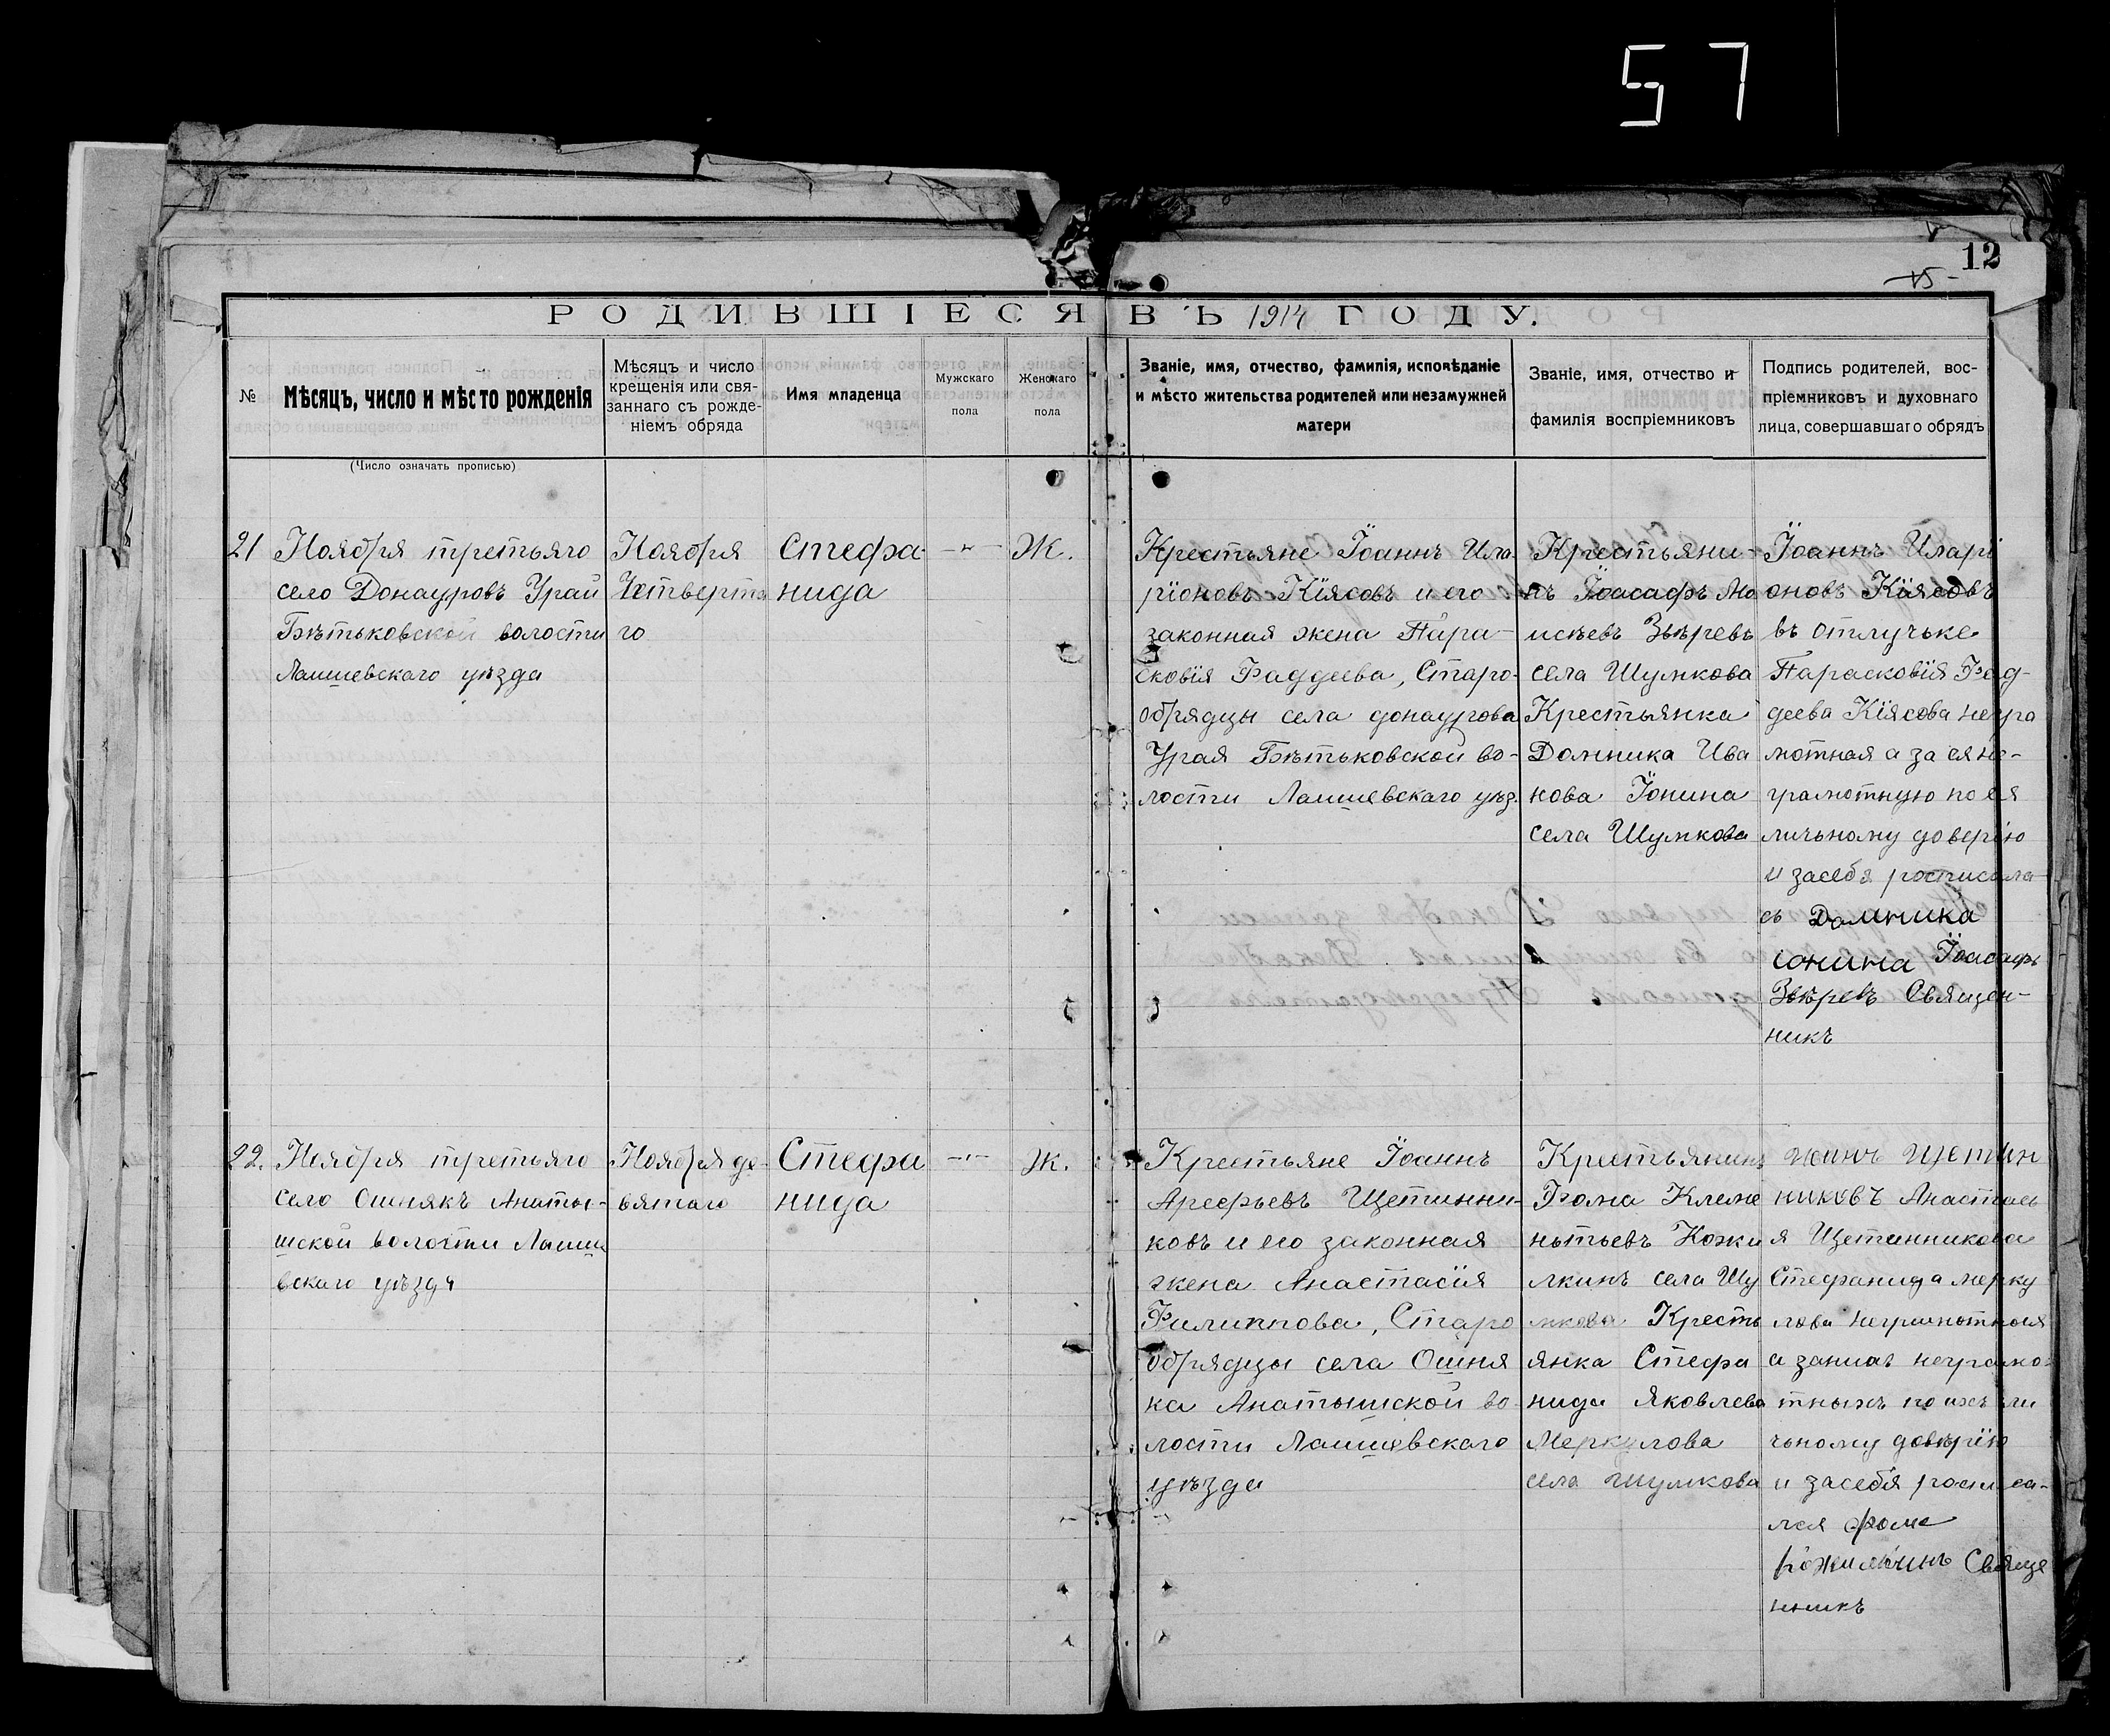 57
12
15
РОДИВШІЕСЯ ВЪ 1914 ГОДУ.
№
Мѣсяцъ, число и мѣсто рожденія
(Число означать прописью)
Мѣсяцъ и число
крещенія или свя-
заннаго съ рожде-
ніемъ обряда
Имя младенца
Мужскаго
пола
Женскаго
пола
Званіе, имя, отчество, фамилія, исповѣданіе
и мѣсто жительства родителей или незамужней
матери
Званіе, имя, отчество и
фамилія воспріемниковъ
Подпись родителей, вос-
пріемниковъ и духовнаго
лица, совершавшаго обрядъ
21
Ноября третьяго
село Донауровъ Урай
Бѣтьковской волости
Лаишевскаго уѣзда
Ноября
Четверта
го
Стефа-
нида
—"—
Ж.
Крестьяне Їоаннъ Ила-
ріоновъ Кїясовъ и его
законная жена Пара-
сковїя Фаддеева, Старо-
обрядцы села донаурова
Урая Бѣтьковской во-
лости Лаишевскаго уѣз.
Крестьяни-
нъ Їоасафъ Мо
исѣевъ Звѣревъ
села Шумкова
Крестьянка
Домника Ива
нова Їонина
села Шумкова
Їоаннъ Иларі
оновъ Кїясовъ
въ отлучьке
Парасковїя Фад-
деева Кїясова негра
мотная а за ея не-
грамотную по ея
личьному доверію
и засебя росписала-
сь Домника
ионина Їоасафъ
Звѣревъ Священ-
никъ
22.
Ноября третьяго
село Ошнякъ Анаты-
шской волости Лаише
вскаго уѣзда
Ноября де-
вятаго
Стефа
нида
—"—
Ж.
Крестьяне Їоаннъ
Арефьевъ Щетинни-
ковъ и его законная
жена Анастасїя
Филиппова, Старо
обрядцы села Ошня
ка Анатышской во
лости Лаишевскаго
уѣзда
Крестьянинъ
Фома Клеме
нтьевъ Кожи
мкинъ села Шу
мкова Кресть
янка Стефа
нида Яковлева
Меркулова
села шумкова
иоинъ щетин
никовъ Анастаси
я Щетинникова
Стефанида мерку
лова неграмотныя
а занихъ неграмо-
тныхъ по ихъ ли
чьному довѣрїю
и засебя росписа-
лся фома
кожимкинъ Священ
никъ